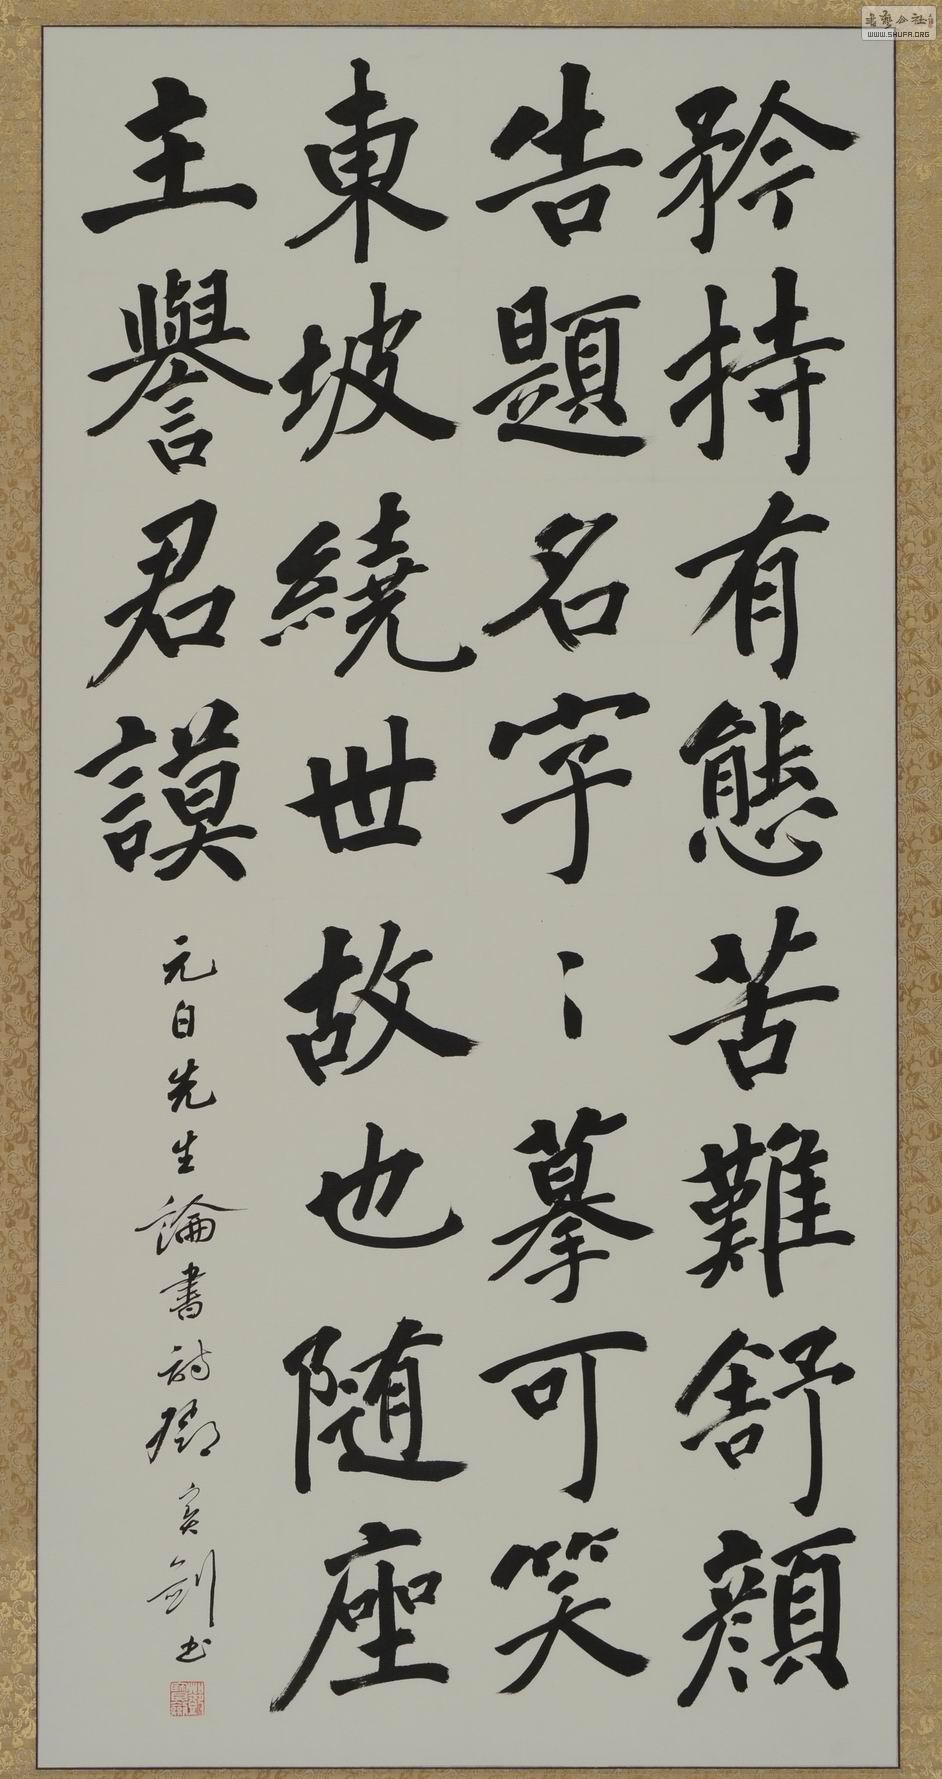 矜持有態苦難舒顏
告題名字〻摹可笑
東坡繞世故也隨座
主譽君謨
元白先生論書詩鄧寶劍書
書藝公社
WWW.SHUFA.ORG